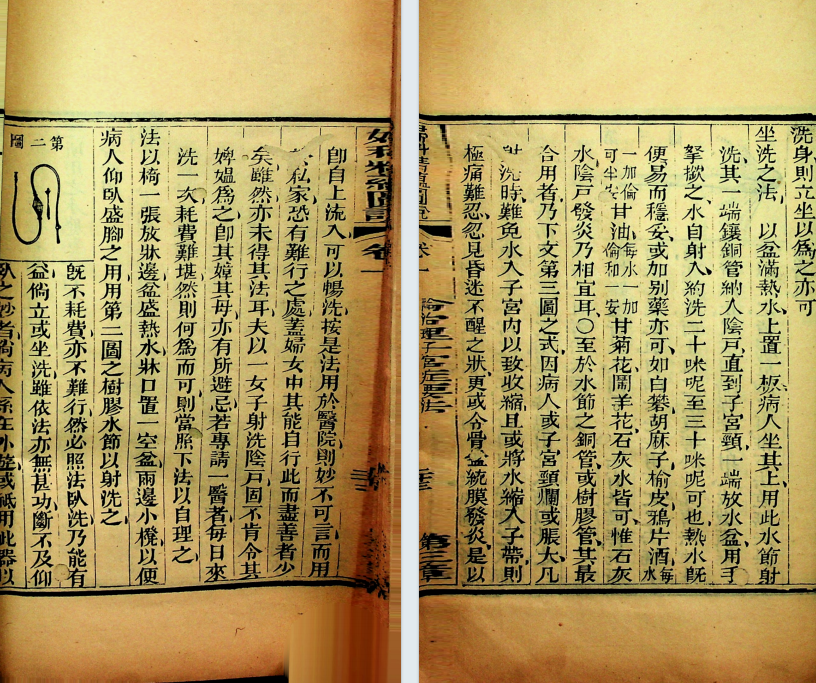 洗身則立坐以為之亦可
坐洗之法 以盆滿熱水上置一板病人坐其上用此水節射
洗其一端鑲銅管納人陰戸直到子宮頸一端放水盆用手
拏揿之水自射入約洗二十咪呢至三十咪呢可也熱水旣
便易而穩妥或加別藥亦可如白礬胡麻子榆皮鴉片酒每水
一加倫可半安甘油每水一加倫和一安甘菊花鬧羊花石灰水皆可惟石灰
水陰戸發炎乃相宜耳○至於水節之銅管或樹膠管其最
合用者乃下文第三圖之式因病人或子宮頸爛或脹大凡
射洗時難免水入子宮內以致收縮且或將水縮入子帶則
極痛難忍忽見昏迷不醒之狀更或令骨盆統膜發炎是以
婦科精蘊圖說 卷一 論治理子宮症要法 第三章
婦科精蘊圖說 卷一
卽自上流入可以暢洗按是法用於醫院則妙不可言而用
私家恐有難行之處蓋婦女中其能自行此而盡善者少
矣雖然亦未得其法耳夫以一女子射洗陰戸固不肯令其
婢媼為之卽其嫜其母亦有所避忌若專請一醫者每日來
洗一次耗費難堪然則何為而可則當照下法以自理之
法以椅一張放牀邊盆盛熱水牀口置一空盆兩邊小櫈以便
病人仰臥盛腳之用用第二圖之樹膠水節以射洗之
第二圖
旣不耗費亦不難行然必照法臥洗乃能有
益倘立或坐洗雖依法亦無甚功斷不及仰
臥之妙者倘病人係在小產或祗用此器以